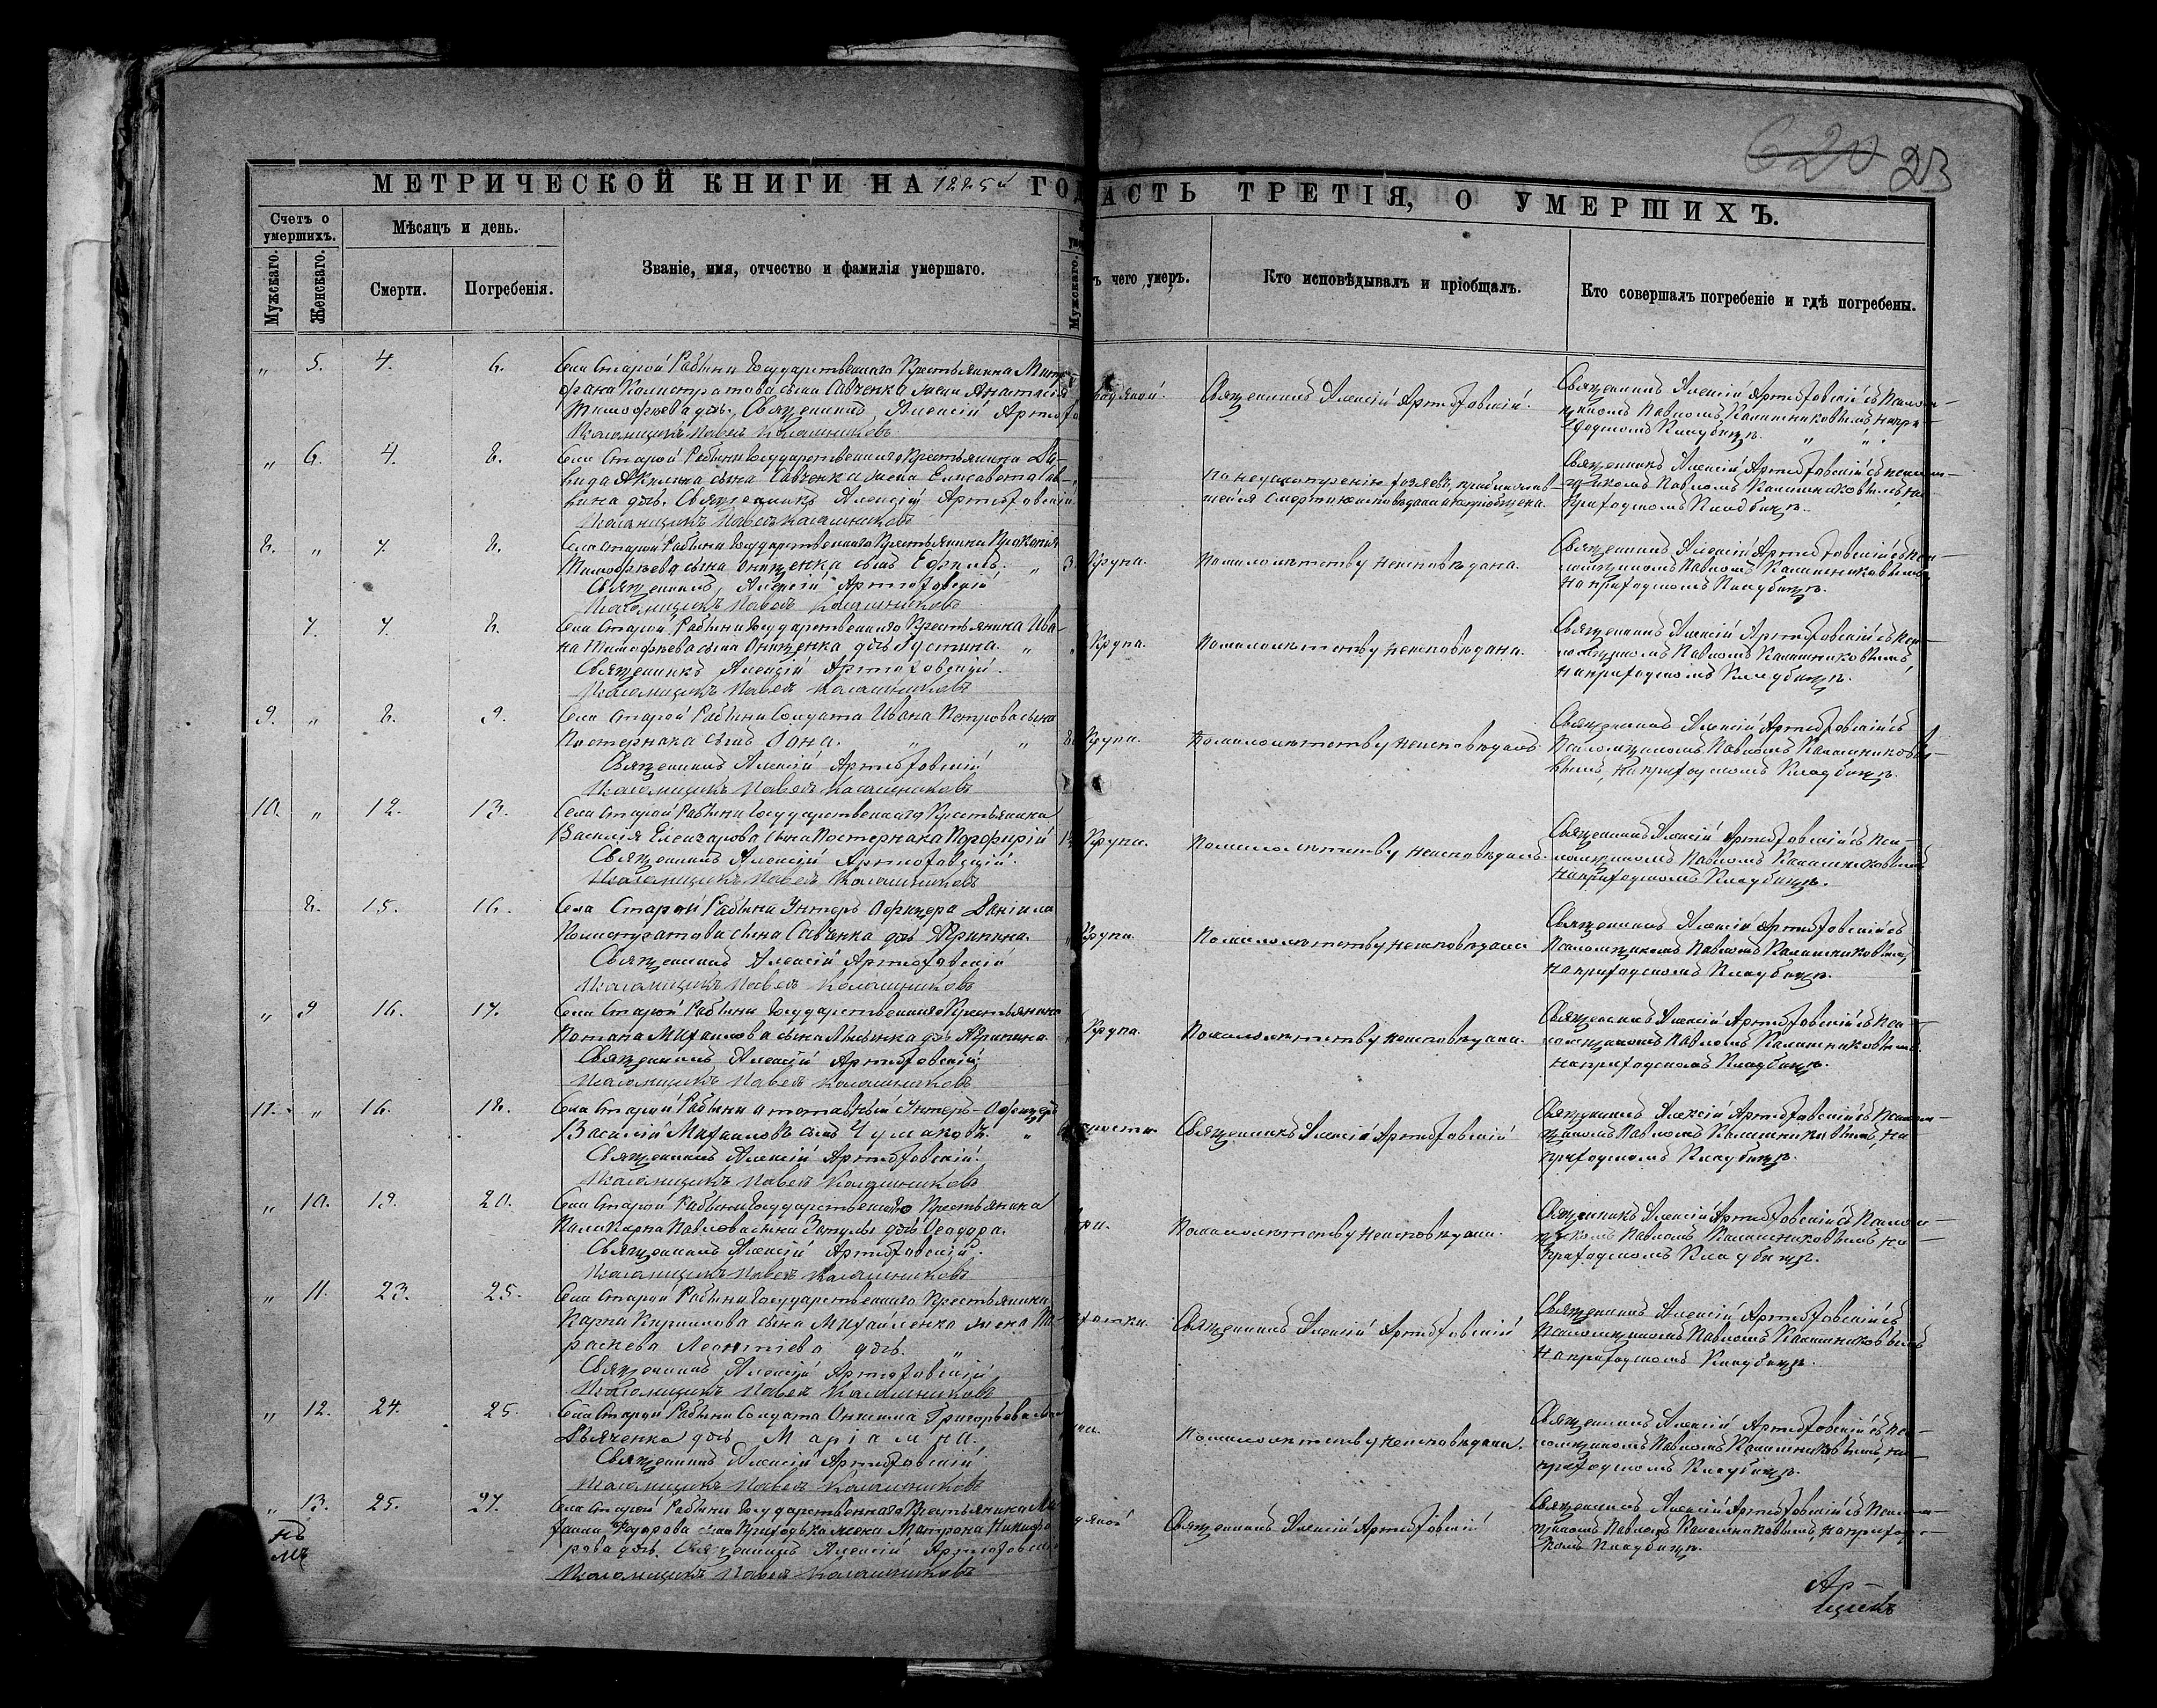 620 23
МЕТРИЧЕСКОЙ КНИГИ НА 1885й ГОД
АСТЬ ТРЕТІЯ, О УМЕРШИХЪ.
Счетъ о умершихъ.
Мужскаго.
Женскаго.
Мѣсяцъ и день.
Смерти.
Погребенія.
Званіе, имя, отчество и фамилія умершаго.
Мужскаго.
ъ чего умеръ.
Кто исповѣдывалъ и пріобщалъ.
Кто совершалъ погребеніе и гдѣ погребены.
„ 5. 4. 6.
Села Старой Рабыни Государственнаго Крестьянина Митро
фана Калистратова сына Савченка жена Анастасія
Тимофѣева дчь. Священникъ Алексій Артюховскій
Псаломщикъ Павелъ Калашниковъ
Священникъ Алексій Артюховскій.
Священникъ Алексій Артюховскій съ Псалом-
щикомъ Павломъ Калашниковымъ на при-
ходскомъ Кладбищѣ. „ „
„ 6. 4. 8.
Села Старой Рабыни Государственнаго Крестьянина Да-
вида сына Савченка жена Елисавета Сав-
вина дчь. Священникъ Алексій Артюховскій
Псаломщикъ Павелъ Калашниковъ
шейся смерти неисповѣдана и непріобщена.
Священникъ Алексій Артюховскій съ псалом-
щикомъ Павломъ Калашниковымъ на
Приходскомъ Кладбищѣ.
8. „ 7. 8.
Села Старой Рабыни Государственнаго Крестьянина Прокопія
Тимофѣева сына Онищенка сынъ Ефимъ. „ 3
Священникъ Алексій Артюховскій
Псаломщикъ Павелъ Калашниковъ
Крупа.
По малолѣтству неисповѣдана.
Священникъ Алексій Артюховскій съ Пса-
ломщикомъ Павломъ Калашниковымъ
на приходскомъ Кладбищѣ.
7. 7. 8.
Села Старой Рабыни Государственнаго Крестьянина Ива-
на Тимофѣева сына Онищенка дчь Іустина. „
Священникъ Алексій Артюховскій.
Псаломщикъ Павелъ Калашниковъ
Крупа.
По малолѣтству неисповѣдана.
Священникъ Алексій Артюховскій съ Пса-
ломщикомъ Павломъ Калашниковымъ,
на приходскомъ Кладбищѣ.
9. „ 8. 9.
Села Старой Рабыни Солдата Ивана Петрова сына
Пастернака сынъ Іона. „ „ 8
Священникъ Алексій Артюховскій
Псаломщикъ Павелъ Калашниковъ
Крупа.
По малолѣтству неисповѣданъ
Священникъ Алексій Артюховскій съ
Псаломщикомъ Павломъ Калашнико-
вымъ, на приходскомъ Кладбищѣ.
10. „ 12. 13.
Села Старой Рабыни Государственнаго Крестьянина
Василія Елеазарова сына Пастернака Порфирій
Священникъ Алексій Артюховскій.
Псаломщикъ Павелъ Калашниковъ
Крупа.
По малолѣтству неисповѣданъ.
Священникъ Алексій Артюховскій съ Пса-
ломщикомъ Павломъ Калашниковымъ
на приходскомъ Кладбищѣ.
8. 15. 16.
Села Старой Рабыни Унтеръ Офицера Даніила
Калистратова сына Савченка дчь Агрипина.
Священникъ Алексій Артюховскій
Псаломщикъ Павелъ Калашниковъ
Крупа.
По малолѣтству неисповѣдана
Священникъ Алексій Артюховскій съ
Псаломщикомъ Павломъ Калашниковымъ,
на приходскомъ Кладбищѣ.
„ 9 16. 17.
Села Старой Рабыни Государственнаго Крестьянина
Потапа Михаилова сына Лысенка дчь Агрипина.
Священникъ Алексій Артюховскій
Псаломщикъ Павелъ Калашниковъ
Крупа.
По малолѣтству неисповѣдана.
Священникъ Алексій Артюховскій съ Пса-
ломщикомъ Павломъ Калашниковымъ.
на приходскомъ Кладбищѣ.
11. „ 16. 18.
Села Старой Рабыни отставный Унтеръ-Офицеръ
Василій Михаиловъ сынъ Чумаковъ. „
Священникъ Алексій Артюховскій.
Псаломщикъ Павелъ Калашниковъ
Священникъ Алексій Артюховскій
Священникъ Алексій Артюховскій съ Псалом-
щикомъ Павломъ Калашниковымъ, на
приходскомъ Кладбищѣ.
„ 10. 19. 20.
Села Старой Рабыни Государственнаго Крестьянина
Поликарпа Павлова сына Запулы дчь Ѳеодора.
Священникъ Алексій Артюховскій.
Псаломщикъ Павелъ Калашниковъ
По малолѣтству неисповѣдана.
Священникъ Алексій Артюховскій съ Псалом-
щикомъ Павломъ Калашниковымъ на
Приходскомъ Кладбищѣ.
„ 11. 23. 25.
Села Старой Рабыни Государственнаго Крестьянина
Карпа Кирилова сына Михайленка жена Па-
раскева Леонтіева дчь. „
Священникъ Алексій Артюховскій
Псаломщикъ Павелъ Калашниковъ
Священникъ Алексій Артюховскій
Священникъ Алексій Артюховскій съ
Псаломщикомъ Павломъ Калашниковымъ
на приходскомъ Кладбищѣ.
„ 12. 24. 25.
Села Старой Рабыни Солдата Онисима Григорьева сына
Дьяченка дчь Маріамна.
Священникъ Алексій Артюховскій
Псаломщикъ Павелъ Калашниковъ
По малолѣтству неисповѣдана.
Священникъ Алексій Артюховскій съ Пса-
ломщикомъ Павломъ Калашниковымъ, на
приходскомъ Кладбищѣ.
„ 13. 25. 27.
Села Старой Рабыни Государственнаго Крестьянина Ми-
хаила Ѳедорова сына Приходька жена Матрона Никифо
рова дчь. Священникъ Алексій Артюховскій
Псаломщикъ Павелъ Калашниковъ
Священникъ Алексій Артюховскій
Священникъ Алексій Артюховскій съ Псалом-
щикомъ Павломъ Калашниковымъ, на приход-
скомъ Кладбищѣ.
Ар-
щикъ